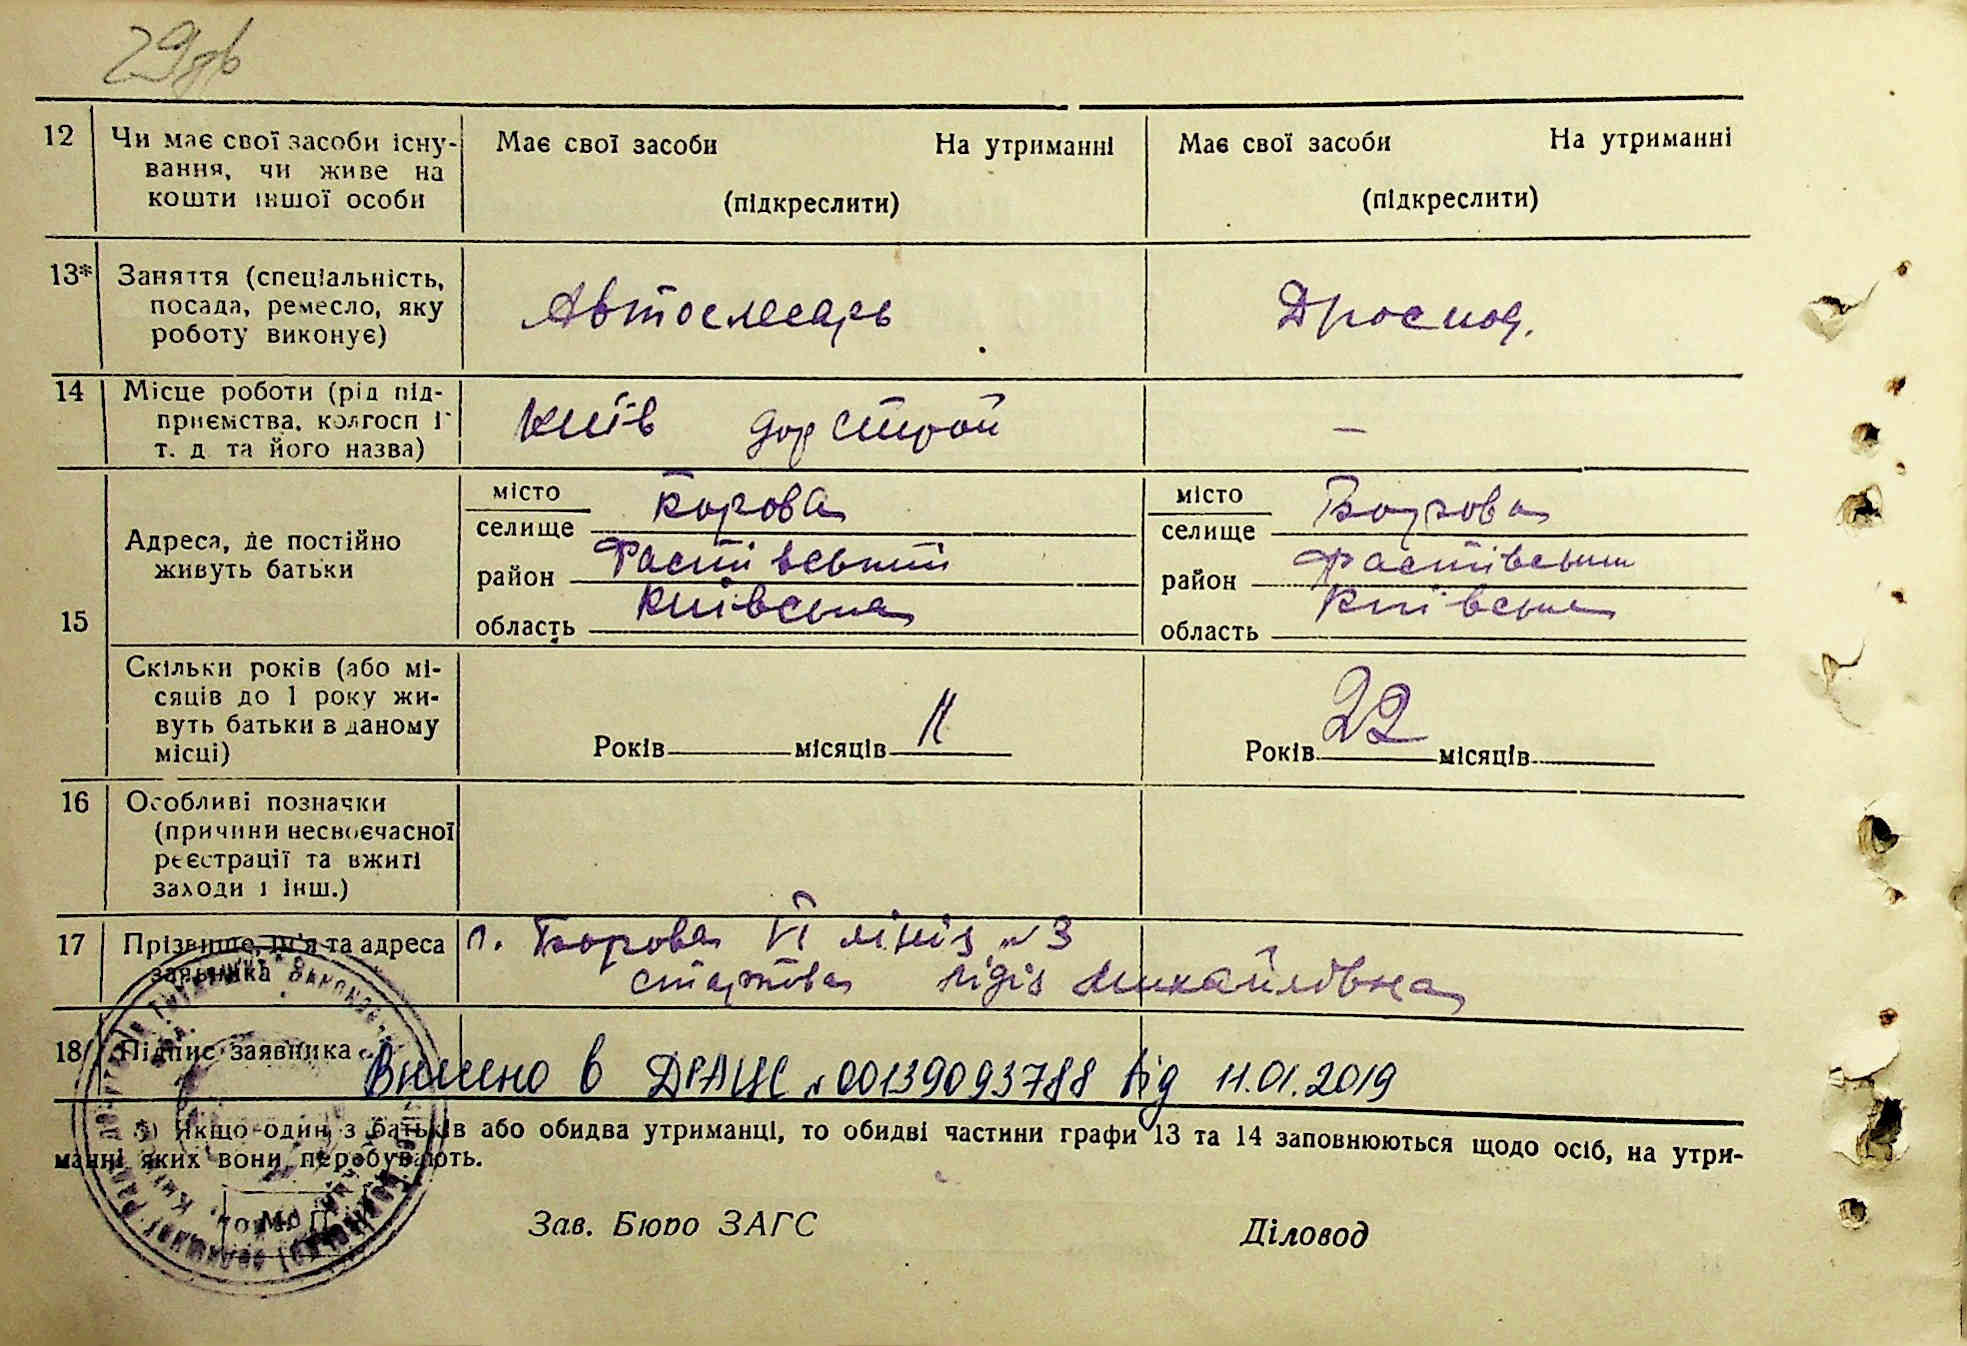 12 Чи має свої засоби існу-
вання, чи живе на
кошти іншої особи
Має свої засоби На утриманні
(підкреслити)
Має свої засоби На утриманні
(підкреслити)
13* Заняття (спеціальність,
посада, ремесло, яку
роботу виконує)
Автослесарь
Дросмод.
14 Місце роботи (рід під-
приємства, колгосп і
т. д. та його назва)
Київ дорстрой
—
15
Адреса, де постійно
живуть батьки
місто
селище Борова
район Фастівський
область Київська
місто
селище Борова
район Фастівський
область Київська
Скільки років (або мі-
сяців до 1 року жи-
вуть батьки в даному
місці)
Років місяців 11
Років 22 місяців
16 Особливі позначки
(причини несвоєчасної
реєстрації та вжиті
заходи і інш.)
17 Прізвище, ім'я та адреса
заявника
п. Борова VI лінія №3
Лідія Михайлівна
18 Підпис заявника
Внесено в ДРАЦС №00139093788 від 11.01.2019
*) Якщо один з батьків або обидва утриманці, то обидві частини графи 13 та 14 заповнюються щодо осіб, на утри-
манні яких вони перебувають.
М. П.
Зав. Бюро ЗАГС
Діловод